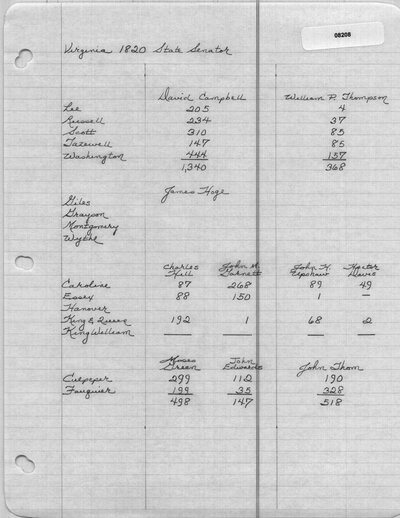 08208
Virginia 1820 State Senator
David Campbell William P. Thompson
Lee 205 4
Russell 234 37
Scott 310 85
Tazewell 147 85
Washington 444 157
1,340 368
James Hoge
Giles
Grayson
Montgomery
Wythe
Charles Hill John M. Garnett John H. Upshaw Davis
Caroline 87 268 89 49
Essex 88 150 1 —
Hanover
King & Queen 192 1 68 2
King William — — — —
Moses Green John Edwards John Thom
Culpeper 299 112 190
Fauquier 199 35 328
498 147 518